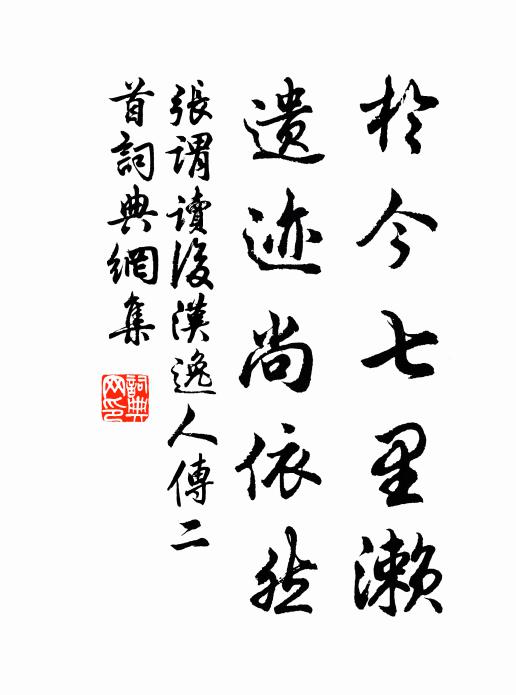 於今七里瀨
遺迹尚依然
張謂讀後漢逸人傳二
首詞典網集
詞典网印